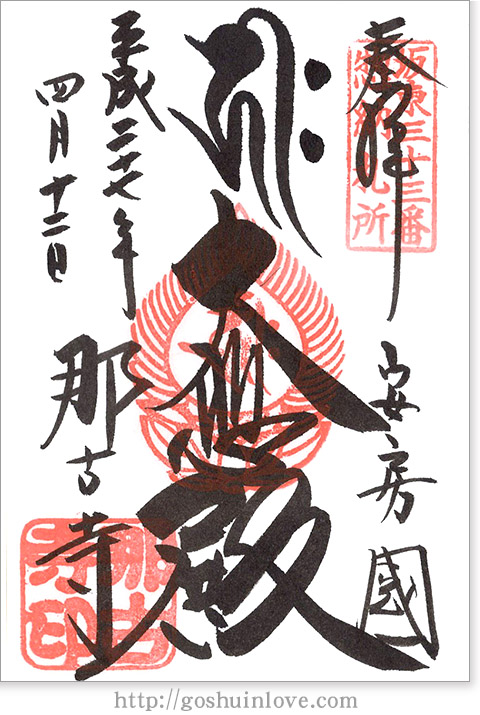 奉拝
坂東三十三番
惣納札所
安房國
大悲殿
平成二十七年
四月十二日
那古寺
那古寺印
http://goshuinlove.com